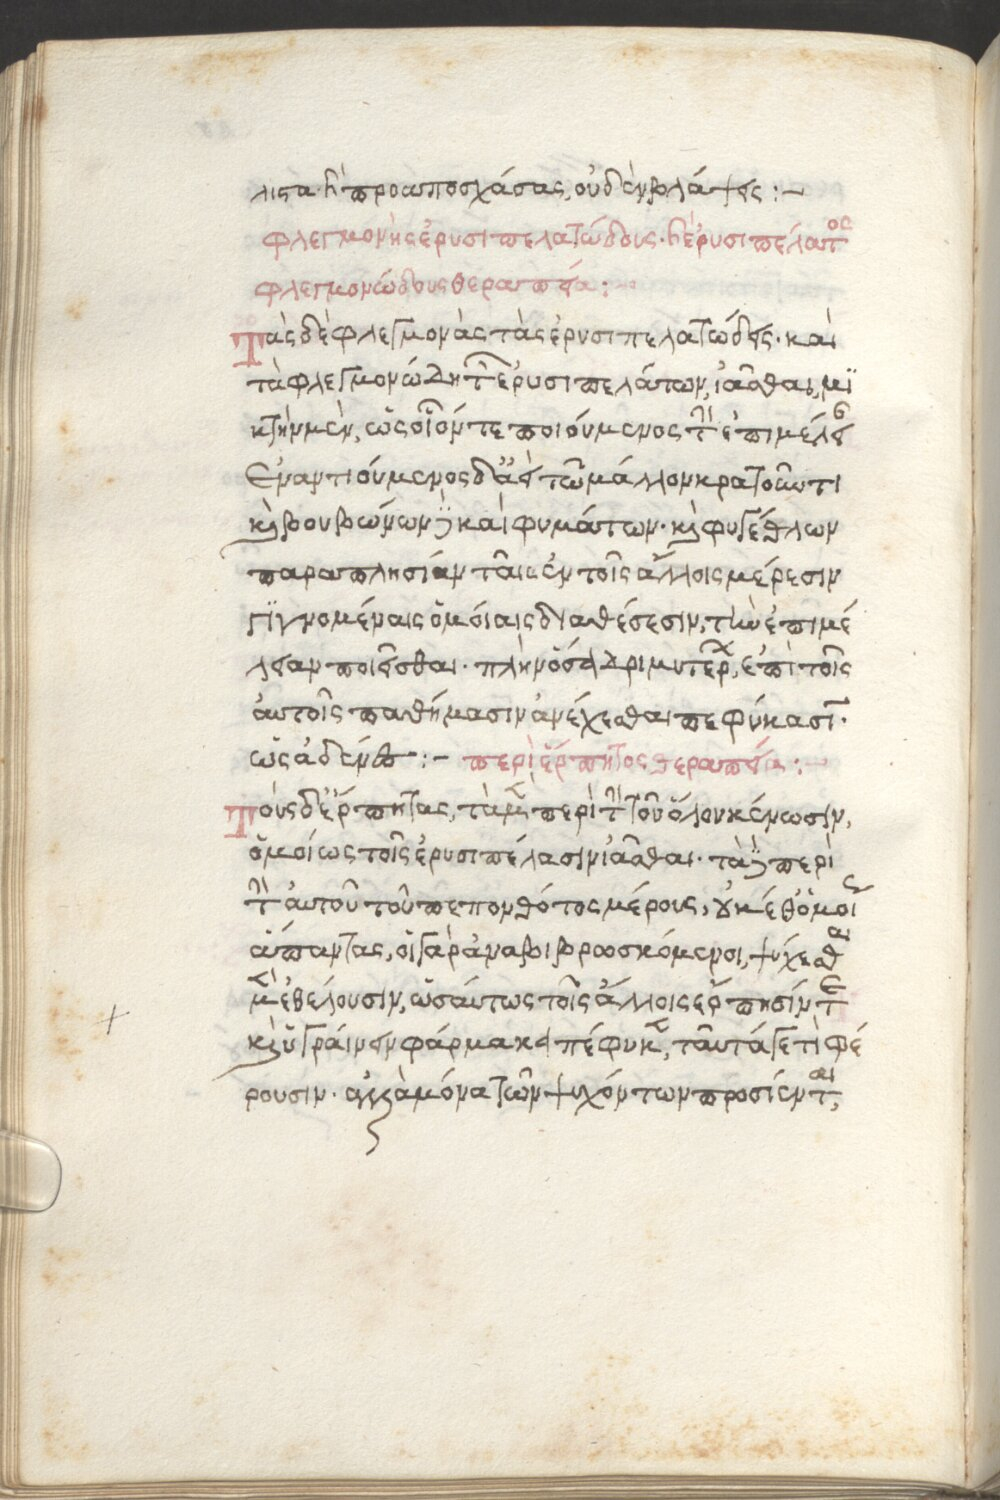 λιστα ἢ προαποσχάσας, οὐδὲν βλάψεις :-
φλεγμονῆς ἐρυσιπελατώδους· ἢ ἐρυσιπέλατος
φλεγμονώδους θεραπεία :-
Τὰς δὲ φλεγμονὰς τὰς ἐρυσιπελατώδεις· καὶ
τὰ φλεγμονώδη τῶν ἐρυσιπελάτων, ἰᾶσθαι, μι
κτὴν μὲν, ὡς οἷόν τε ποιούμενος τὴν ἐπιμέλει
ἐναντιούμενος δ' ἀεὶ τῶ μᾶλλον κρατοῦντι
καὶ βουβώνων δὲ καὶ φυμάτων· καὶ φυγέθλων
παραπλησίαν ταῖς ἐν τοῖς ἄλλοις μέρεσιν
γινομέναις ὁμοίαις διαθέσεσιν, τὴν ἐπιμέ
λειαν ποιεῖσθαι· πλὴν ὅσα δριμυτέρων, ἐπὶ τοῖς
αὐτοῖς παθήμασιν ἀνέχεσθαι πεφύκασιν·
ὡς ἀδένες :- περὶ ἕρπητος θεραπεία :-
Τοὺς δ' ἕρπητας, τὰ μὲν περὶ τὴν τοῦ ὅλου κένωσιν,
ὁμοίως τοῖς ἐρυσιπέλασιν ἰᾶσθαι· τὰ δὲ περὶ
τὴν αὐτοῦ τοῦ πεπονθότος μέρους, οὐκέθ' ὁμοίως
ἅπαντας, οἱ γὰρ ἀναβιβρωσκόμενοι, ψύχεσθαι
μὲν ἐθέλουσιν, ὡσαύτως τοῖς ἄλλοις ἕρπησιν
καὶ ὑγραίνειν φάρμακα πέφυκεν, ταῦτά γε τι φέ
ρουσιν· ἀλλὰ μόνα τῶν ψυχόντων προσίενται,